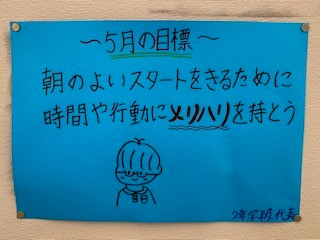 ～5月の目標～
朝のよいスタートをきるために
時間や行動にメリハリを持とう
2年学級代表